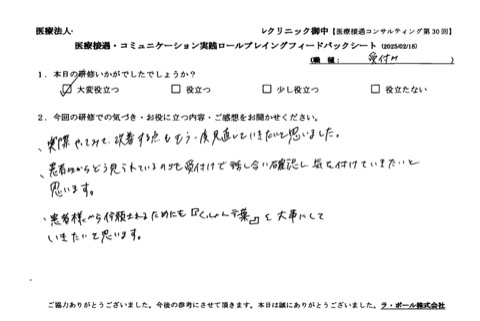 医療法人
レクリニック御中【医療接遇コンサルティング第30回】
医療接遇・コミュニケーション実践ロールプレイングフィードバックシート (2025/02/18)
(職 種: 受付け )
1.本日の研修いかがでしたでしょうか?
☑ 大変役立つ □ 役立つ □ 少し役立つ □ 役立たない
2.今回の研修での気づき・お役に立つ内容・ご感想をお聞かせください。
、実際やってみて、改善する点をもう一度見直していきたいと思いました。
、患者様からどう見られているのかを受付けで話し合い確認し、気を付けていきたいと
思います。
、患者様から信頼されるためにも『くっしょん言葉』を大事にして
いきたいと思います。
ご協力ありがとうございました。今後の参考にさせて頂きます。本日は誠にありがとうございました。ラ・ポール株式会社